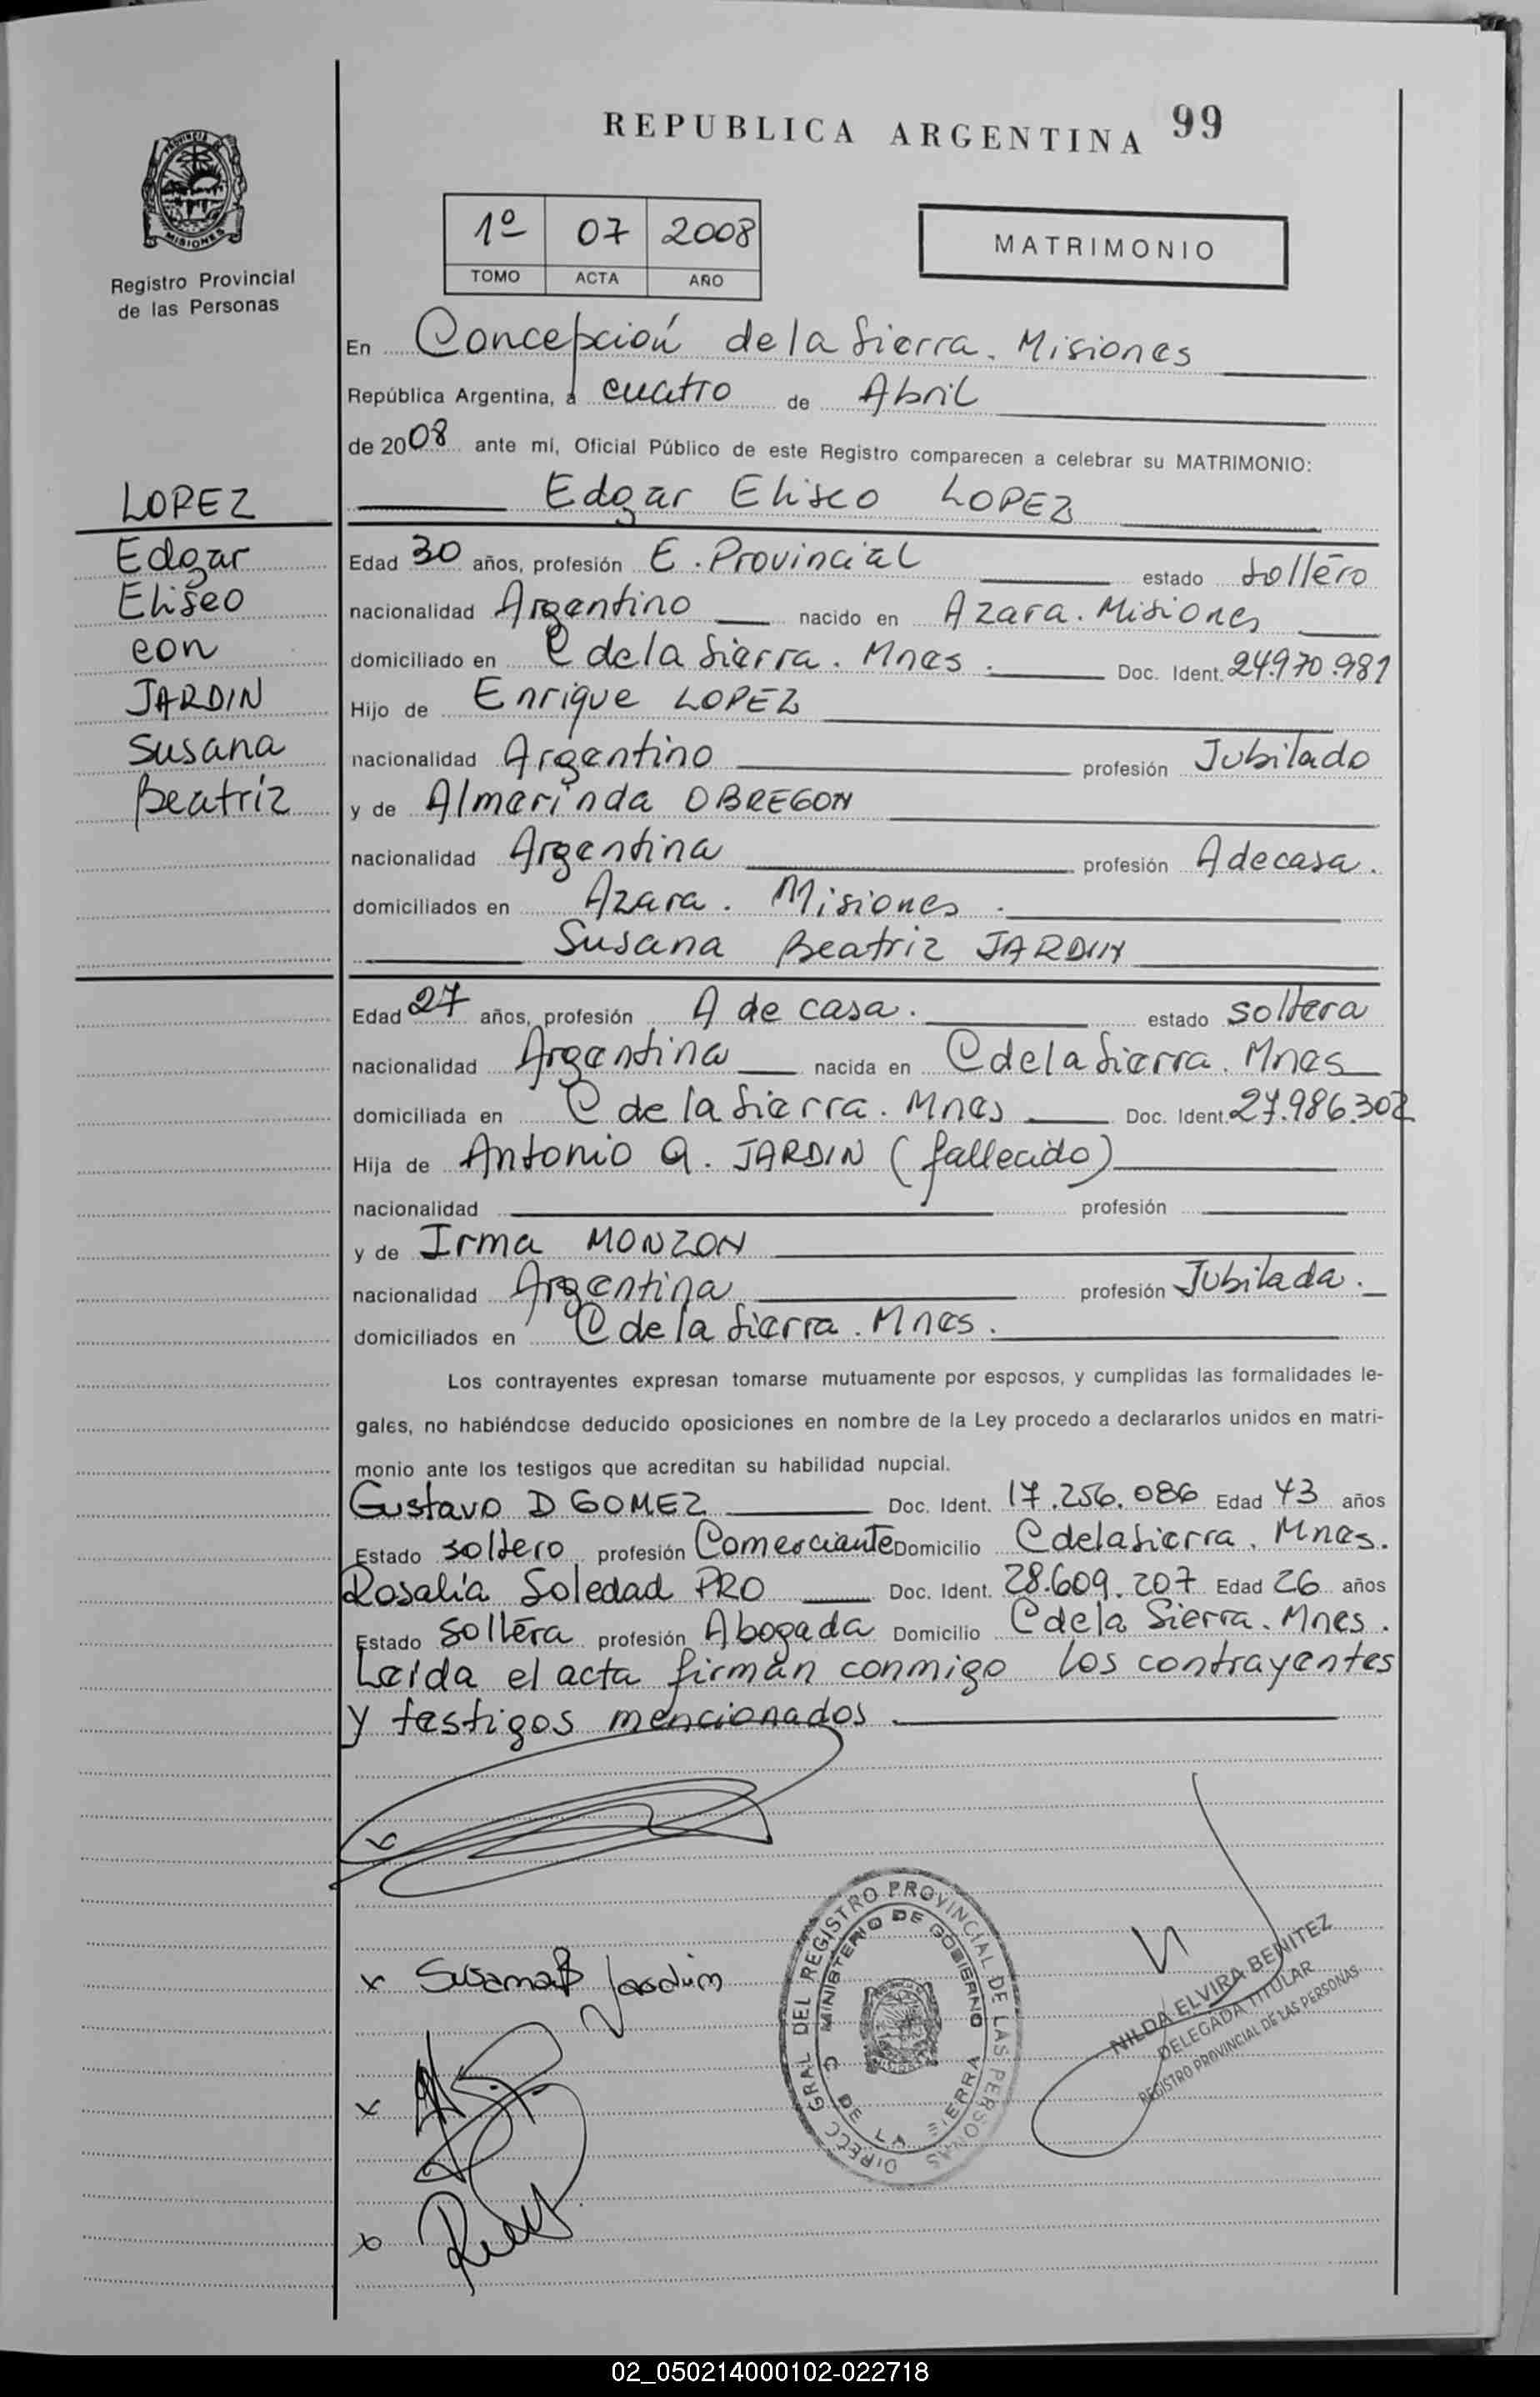 REPUBLICA ARGENTINA 99
PROVINCIA
MISIONES
Registro Provincial
de las Personas
1º 07 2008
TOMO ACTA AÑO
MATRIMONIO
En Concepción de la Sierra. Misiones
República Argentina, a cuatro de Abril
de 2008 ante mí, Oficial Público de este Registro comparecen a celebrar su MATRIMONIO:
LOPEZ
Edgar
Eliseo
con
JARDIN
Susana
Beatriz
Edgar Eliseo LOPEZ
Edad 30 años, profesión E. Provincial estado soltero
nacionalidad Argentino nacido en Azara. Misiones
domiciliado en C de la Sierra. Mnes. Doc. Ident. 24.970.981
Hijo de Enrique LOPEZ
nacionalidad Argentino profesión Jubilado
y de Almerinda OBREGON
nacionalidad Argentina profesión A de casa.
domiciliados en Azara. Misiones.
Susana Beatriz JARDIN
Edad 27 años, profesión A de casa. estado soltera
nacionalidad Argentina nacida en C de la Sierra. Mnes
domiciliada en C de la Sierra. Mnes Doc. Ident. 27.986.302
Hija de Antonio A. JARDIN (fallecido)
nacionalidad profesión
y de Irma MONZON
nacionalidad Argentina profesión Jubilada.
domiciliados en C de la Sierra. Mnes.
Los contrayentes expresan tomarse mutuamente por esposos, y cumplidas las formalidades le-
gales, no habiéndose deducido oposiciones en nombre de la Ley procedo a declararlos unidos en matri-
monio ante los testigos que acreditan su habilidad nupcial.
Gustavo D GOMEZ Doc. Ident. 17.256.086 Edad 43 años
Estado soltero profesión Comerciante Domicilio C de la Sierra. Mnes.
Rosalía Soledad PRO Doc. Ident. 28.609.207 Edad 26 años
Estado soltera profesión Abogada Domicilio C de la Sierra. Mnes.
Leída el acta firman conmigo los contrayentes
y testigos mencionados
x
x Susana B Jardin
x
x
DIRECC GRAL DEL REGISTRO PROVINCIAL DE LAS PERSONAS
MINISTERIO DE GOBIERNO
C. DE LA SIERRA
NILDA ELVIRA BENITEZ
DELEGADA TITULAR
REGISTRO PROVINCIAL DE LAS PERSONAS
02_050214000102-022718